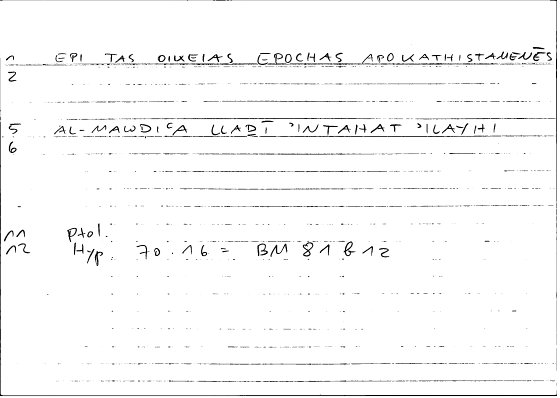 1 EPI TAS OIKEIAS EPOCHAS APOKATHISTAMENĒS
2
5 AL-MAWDIʿA LLADĪ ʾINTAHAT ʾILAYHI
6
11 Ptol.
12 Hyp. 70.16 = BM 81 b 12